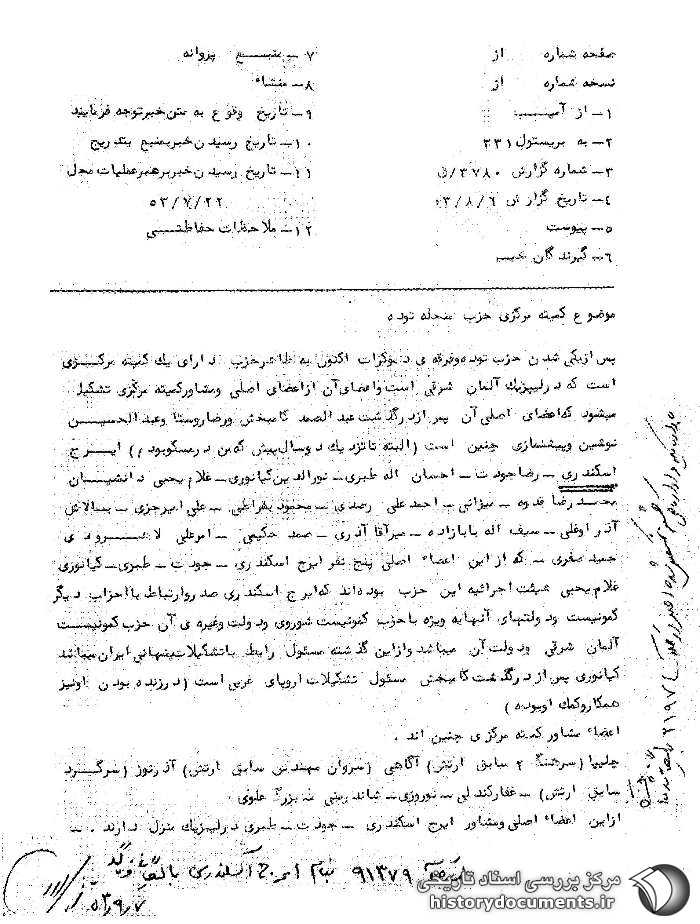 صفحه شماره از
نسخه شماره از
۱ــ از
۲ــ به بریستول ۲۳۱
۳ــ شماره گزارش ۳۷۸۰/
۴ــ تاریخ گزارش ۵۳/۸/۶
۵ــ پیوست
۶ــ گیرندگان خبر
۷ــ منبع پروانه
۸ــ منشاء
۹ــ تاریخ وقوع به متن خبر توجه فرمایند
۱۰ــ تاریخ رسیدن خبر بمنبع بتدریج
۱۱ــ تاریخ رسیدن خبر برهبر عملیات محل
۵۳/۷/۲۲
۱۲ــ ملاحظات حفاظتی
موضوع کمیته مرکزی حزب منحله توده
پس از یکی شدن حزب توده و فرقه ی دموکرات اکنون به ظاهر حزب دارای یک کمیته مرکزی
است که در لیپزیک آلمان شرقی است و اعضای آن از اعضای اصلی و مشاور کمیته مرکزی تشکیل
میشود که اعضای اصلی آن پس از درگذشت عبدالصمد کامبخش و رضا روستا و عبدالحسین
نوشین و پیشنمازی چنین است (البته تا نزدیک دو سال پیش که من در مسکو بودم) ایرج
اسکندری ــ رضا جودت ــ احسان اله طبری ــ نورالدین کیانوری ــ غلام یحیی دانشیان
محمد رضا قدوه ــ میزانی ــ احمد علی رصدی ــ محمود بقراطی ــ علی امیرخیزی ــ
آذر اوغلی ــ سیف اله بابازاده ــ میرآقا آذری ــ صمد حکیمی ــ امیر علی لاهرودی
حمید صفری ــ که از این اعضاء اصلی پنج نفر ایرج اسکندری ــ جودت ــ طبری ــ کیانوری
غلام یحیی هیئت اجرائیه این حزب بوده‌اند که ایرج اسکندری صدر و ارتباط با احزاب دیگر
کمونیست و دولتهای آنها به ویژه با حزب کمونیست شوروی و دولت و غیره ی آن حزب کمونیست
آلمان شرقی و دولت آن میباشد و از این گذشته مسئول رابط با تشکیلات پنهانی ایران میباشد
کیانوری پس از درگذشت کامبخش مسئول تشکیلات اروپای غربی است (در زنده بودن او نیز
همکار و کمک او بوده)
اعضاء مشاور کمته مرکزی چنین اند .
چلیپا (سرهنگ ۲ سابق ارتش) آگاهی (سروان مهندس سابق ارتش) آذرنور (سرگرد
سابق ارتش) ــ غفار کندلی ــ نوروزی ــ بزرگ علوی .
از این اعضاء اصلی و مشاور ایرج اسکندری ــ جودت ــ طبری در لیپزیک منزل دارند . ــ
۹۱۳۷۹ بنام ایرج اسکندری
۵۳/۹/۷
مرکز بررسی اسناد تاریخی
historydocuments.ir